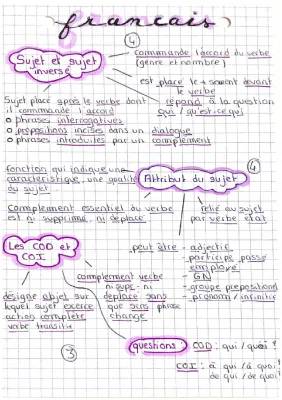 francais
④
Sujet et sujet inversé
commande l'accord du verbe
(genre et nombre)
est placé le + souvent devant
le verbe
répond à la question
qui / qu'est-ce qui
Sujet placé après le verbe dont
il commande l'accord
o phrases interrogatives
o propositions incises dans un dialogue
o phrases introduites par un complément
fonction qui indique une
caractéristique, une qualité
du sujet
Attribut du sujet
④
Complement essentiel du verbe
est ni supprimé, ni déplacé
relié au sujet
par verbe état
Les COD et
COI
peut être - adjectif
- participe passé
employé
- GN
- groupe prepositionel
- pronom / infinitif
complement verbe
ni supp. ni
déplacé sans
que sens phrase
change
désigne objet sur
lequel sujet exerce
action complète
verbe transitif
③
questions
COD : qui / quoi ?
COI : à qui / à quoi ?
de qui / de quoi ?